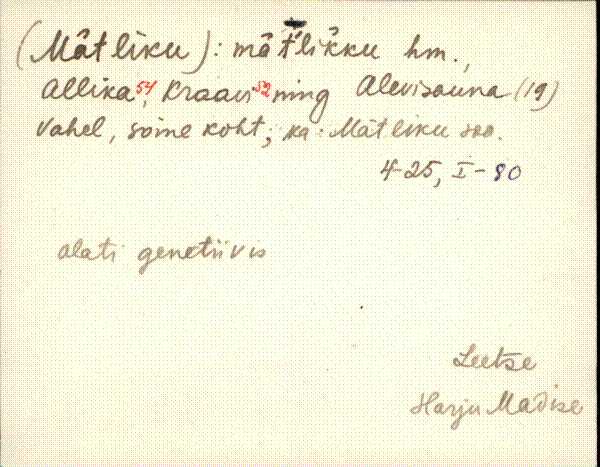 (Mätliku): mät'likku hm.,
Allika 54, Kraavi 52 ning Alevisauna (19)
vahel, soine koht; ka: Mätliku soo.
4-25, I-80
alati genetiivis
Leetse
Harju Madise